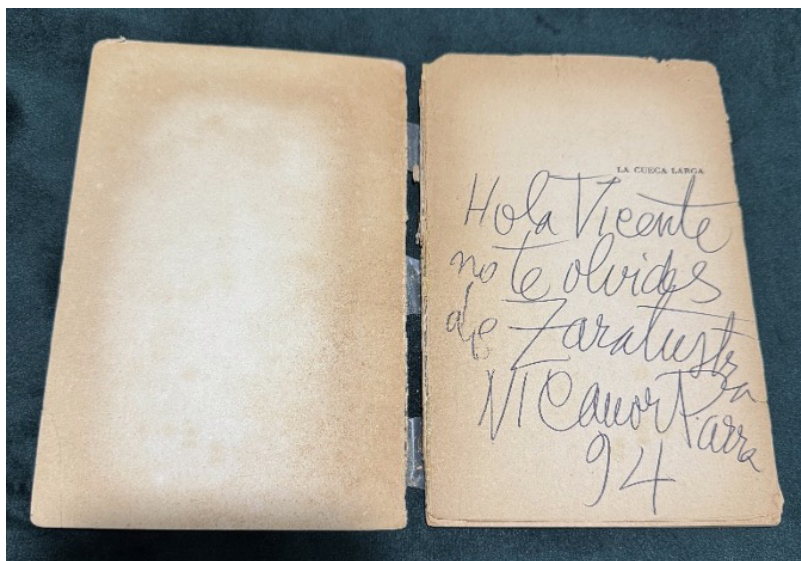 LA CUECA LARGA
Hola Vicente
no te olvides
de Zaratustra
Nicanor Parra
94